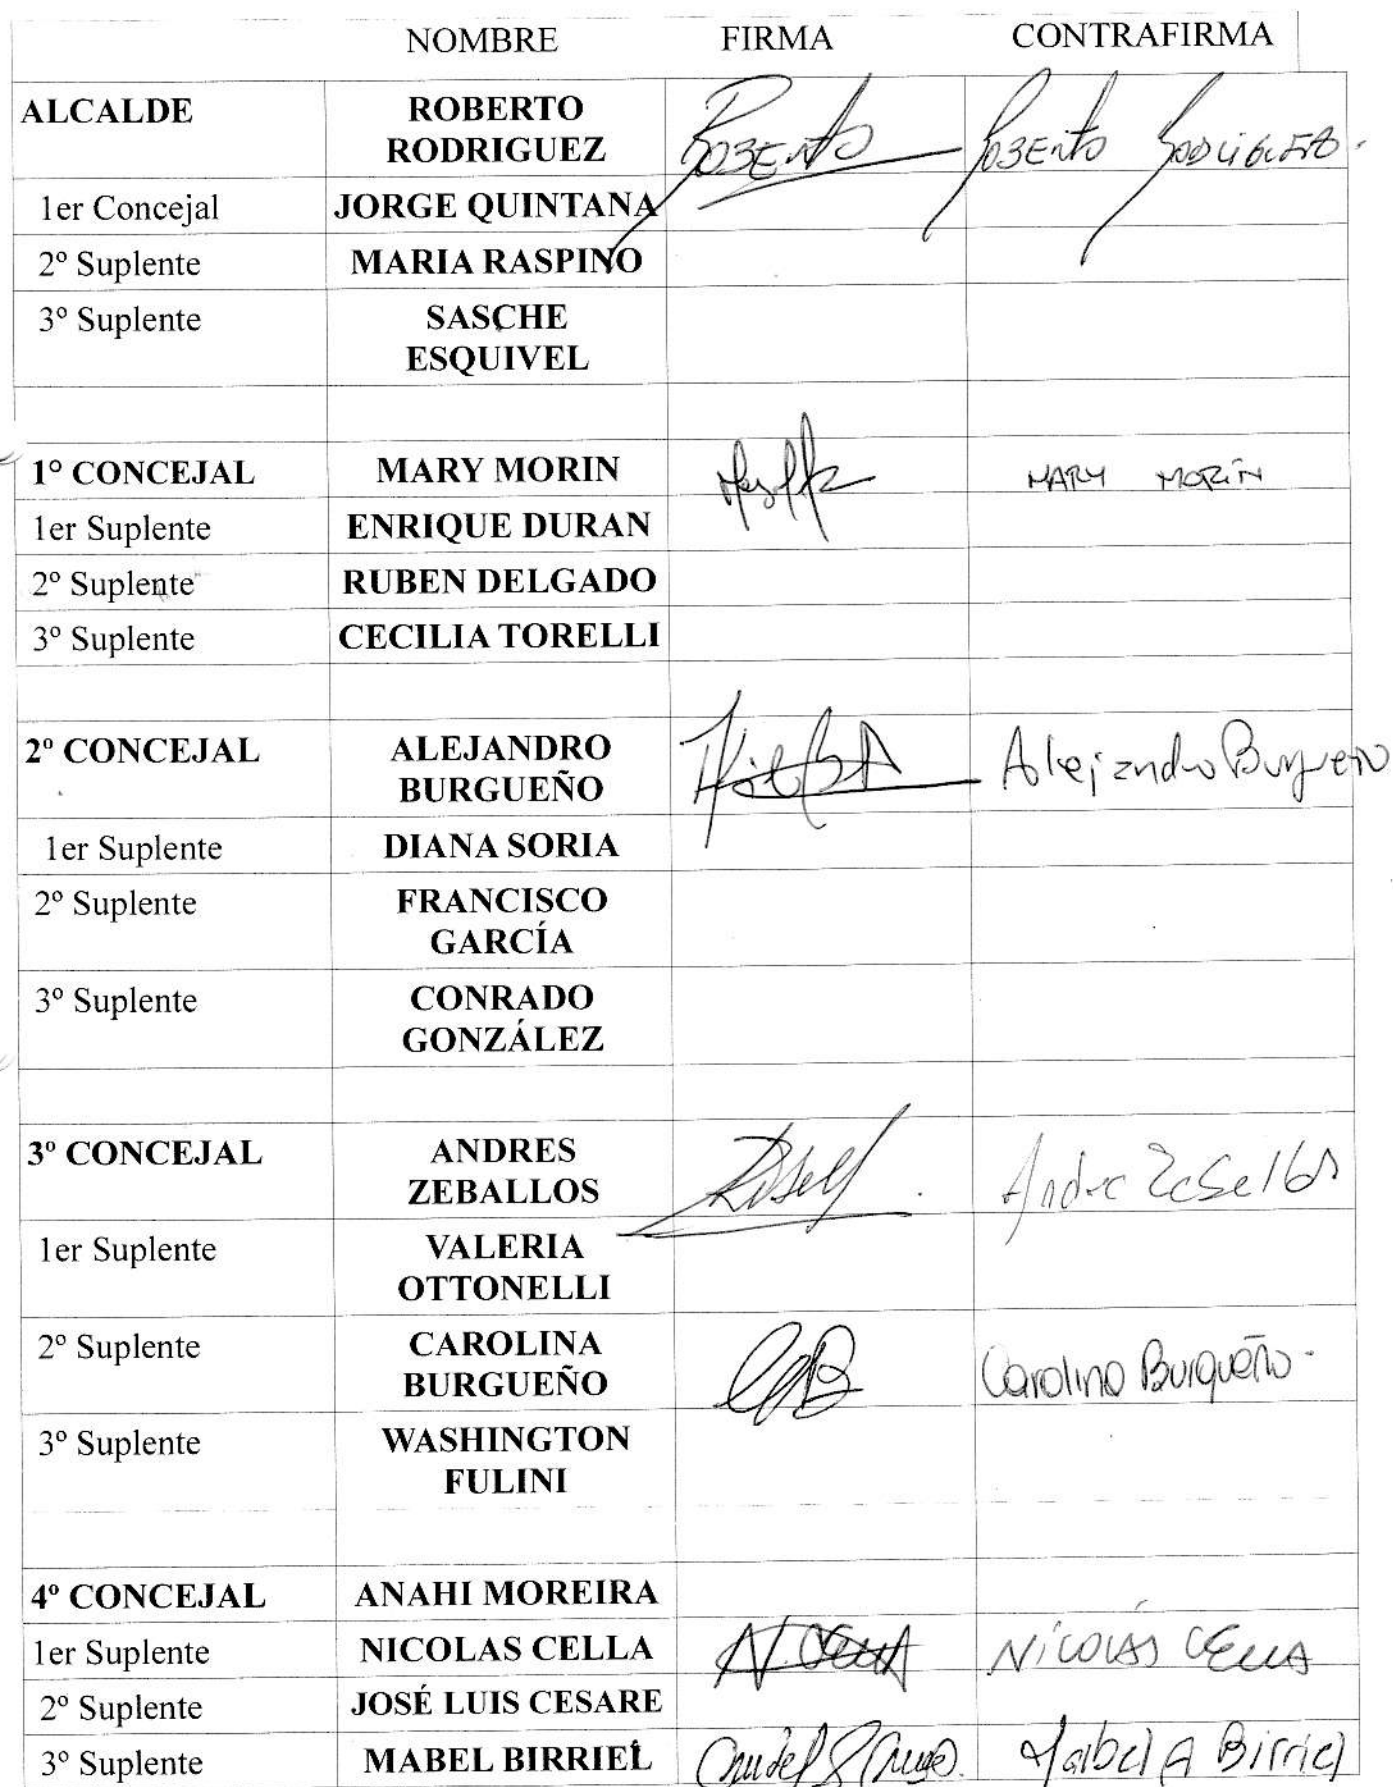 NOMBRE FIRMA CONTRAFIRMA
ALCALDE ROBERTO RODRIGUEZ ROBERTO ROBERTO RODRIGUEZ.
1er Concejal JORGE QUINTANA
2º Suplente MARIA RASPINO
3º Suplente SASCHE ESQUIVEL
1º CONCEJAL MARY MORIN MARY MORíN
1er Suplente ENRIQUE DURAN
2º Suplente RUBEN DELGADO
3º Suplente CECILIA TORELLI
2º CONCEJAL ALEJANDRO BURGUEÑO Alejandro Burgueño
1er Suplente DIANA SORIA
2º Suplente FRANCISCO GARCÍA
3º Suplente CONRADO GONZÁLEZ
3º CONCEJAL ANDRES ZEBALLOS
1er Suplente VALERIA OTTONELLI
2º Suplente CAROLINA BURGUEÑO CaB Carolina Burgueño.
3º Suplente WASHINGTON FULINI
4º CONCEJAL ANAHI MOREIRA
1er Suplente NICOLAS CELLA N. CELLA NICOLÁS CELLA
2º Suplente JOSÉ LUIS CESARE
3º Suplente MABEL BIRRIEL Mabel A Birriel